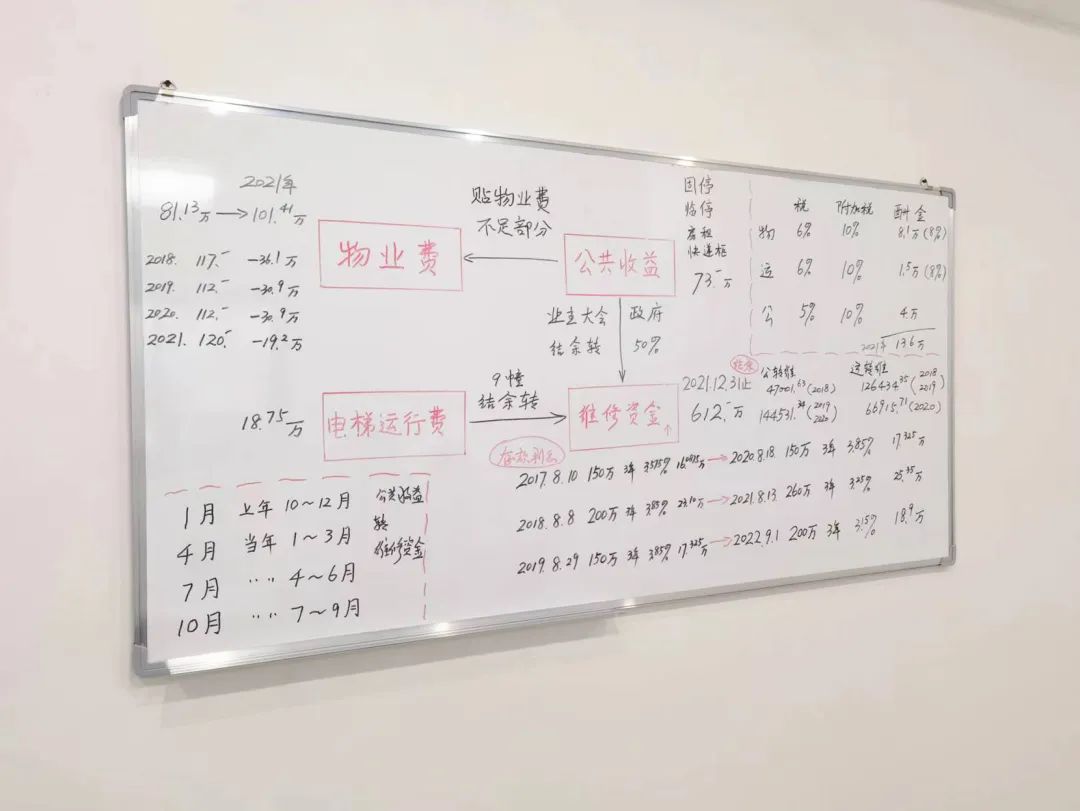 2021年
81.13万→101.41万
2018. 117.- -36.1万
2019. 112.- -30.9万
2020. 112.- -30.9万
2021. 120.- -19.2万
物业费
贴物业费
不足部分
公共收益
固停
临停
房租
快递柜
73.-万
税 附加税 酬金
物 6% 10% 8.1万(8%)
运 6% 10% 1.5万(8%)
公 5% 10% 4.万
2021年 13.6万
业主大会 政府
结余转 50%
18.75万
电梯运行费
9幢
结余转
维修资金↑
2021.12.31止
612.-万
结余
公转维 运转维
47001.63(2018) 126434.35(2018 2019)
144531.34(2019 2020) 66915.71(2020)
存款利息
2017.8.10 150万 3年 3.575% →2020.8.18. 150万 3年 3.85% 17.325万
2018.8.8 200万 3年 3.85% 23.10万→2021.8.13. 260万 3年 3.25% 25.35万
2019.8.29 150万 3年 3.85% 17.325万→2022.9.1 200万 3年 3.15% 18.9万
1月 上年 10~12月
4月 当年 1~3月
7月 〃 〃 4~6月
10月 〃 〃 7~9月
公共收益
转
维修资金